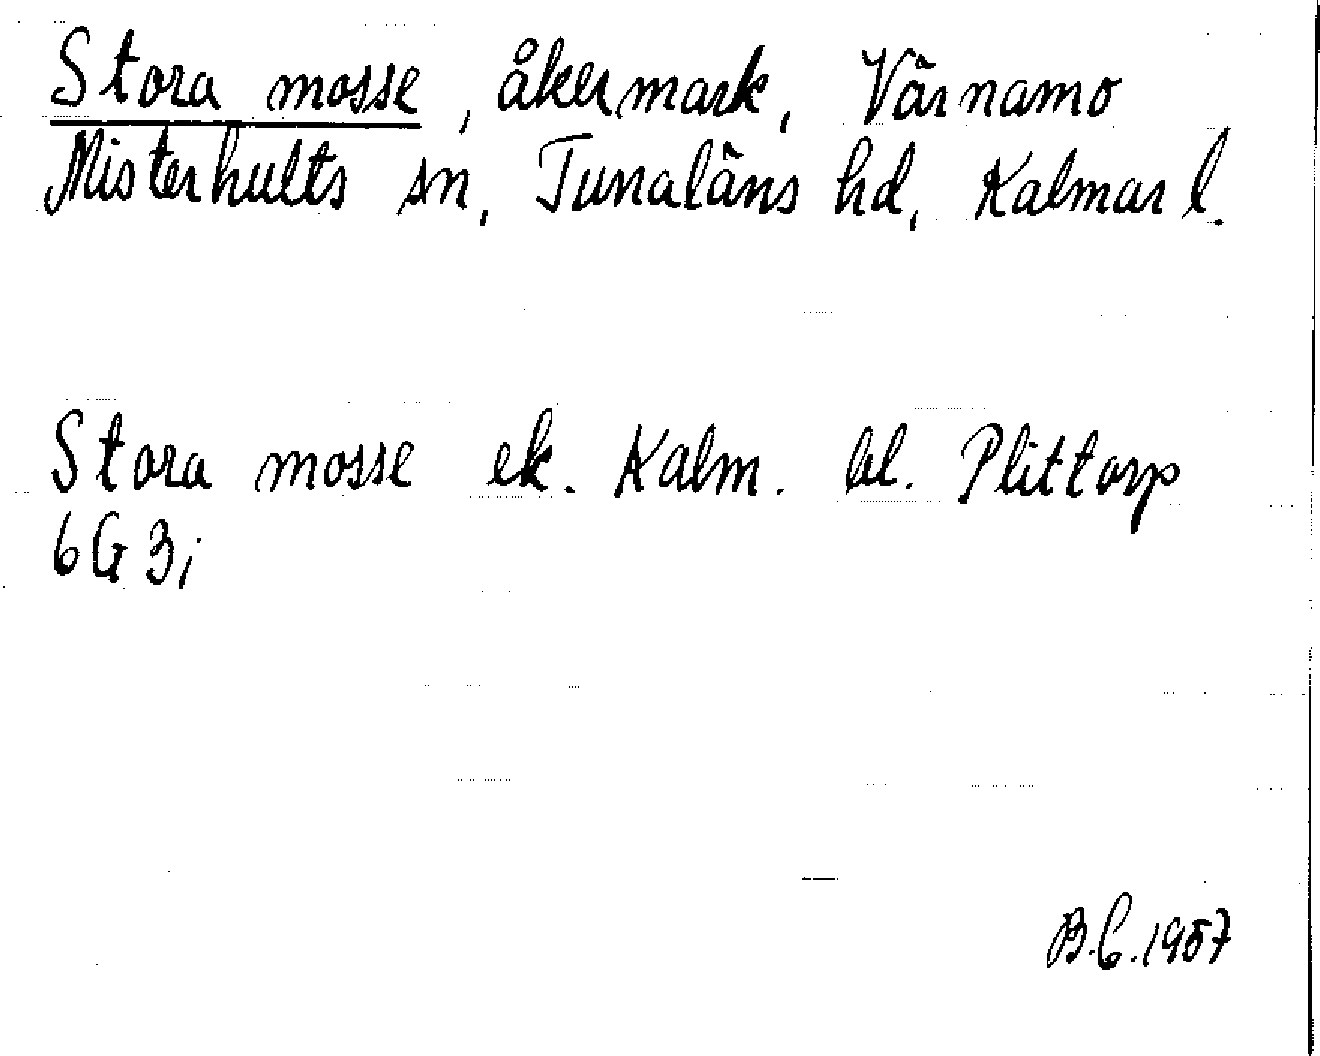 Stora mosse, åkermark, Värnamo
Misterhults sn, Tunaläns hd, Kalmar l.
Stora mosse ek. Kalm. bl. Plittorp
6G 3i
B.C. 1957